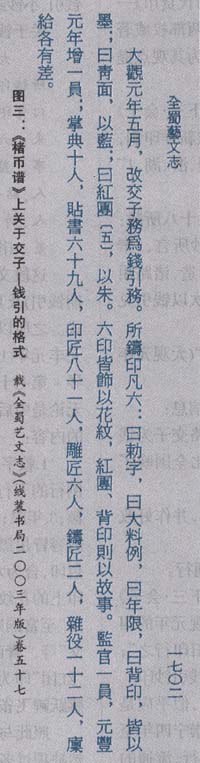 全蜀藝文志
一七〇二
大觀元年五月，改交子務爲錢引務。所鑄印凡六：曰勅字，曰大料例，曰年限，曰背印，皆以
墨；曰青面，以藍；曰紅團〔五〕，以朱。六印皆飾以花紋，紅團、背印則以故事。監官一員，元豐
元年增一員；掌典十人，貼書六十九人，印匠八十一人，雕匠六人，鑄匠二人，雜役一十二人，廩
給各有差。
图三：《楮币谱》上关于交子、钱引的格式 载《全蜀艺文志》（线装书局二〇〇三年版）卷五十七